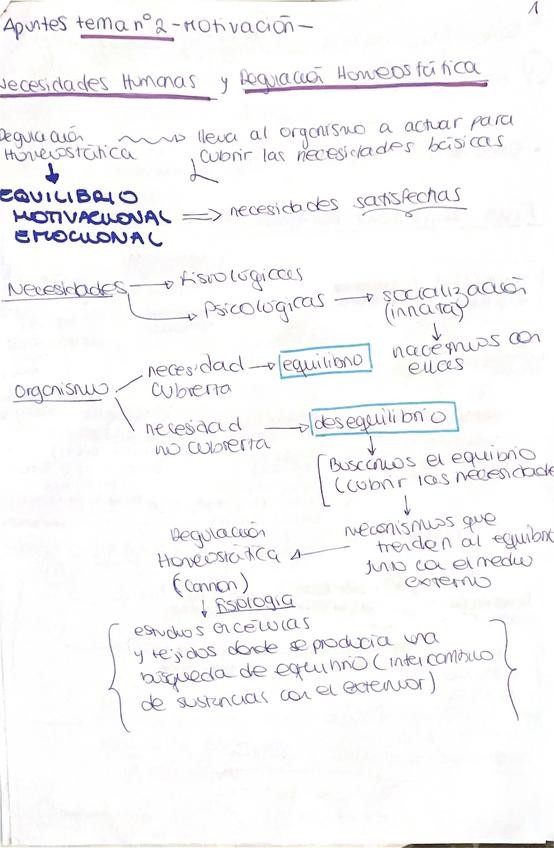 1
Apuntes tema nº 2 - Motivación -
Necesidades Humanas y Regulación Homeostática
Regulación Homeostática → lleva al organismo a actuar para
cubrir las necesidades básicas
EQUILIBRIO
MOTIVACIONAL ⇒ necesidades satisfechas
EMOCIONAL
Necesidades → Fisiológicas
→ Psicológicas → socialización
(innata)
nacemos con
ellas
Organismo
necesidad → equilibrio
cubierta
necesidad → desequilibrio
no cubierta
Buscamos el equilibrio
(cubrir las necesidade
mecanismos que
tienden al equilibrio
junto con el medio
externo
Regulación
Homeostática
(Cannon)
↓ fisiología
estudios en células
y tejidos donde se producía una
búsqueda de equilibrio (intercambio
de sustancias con el exterior)